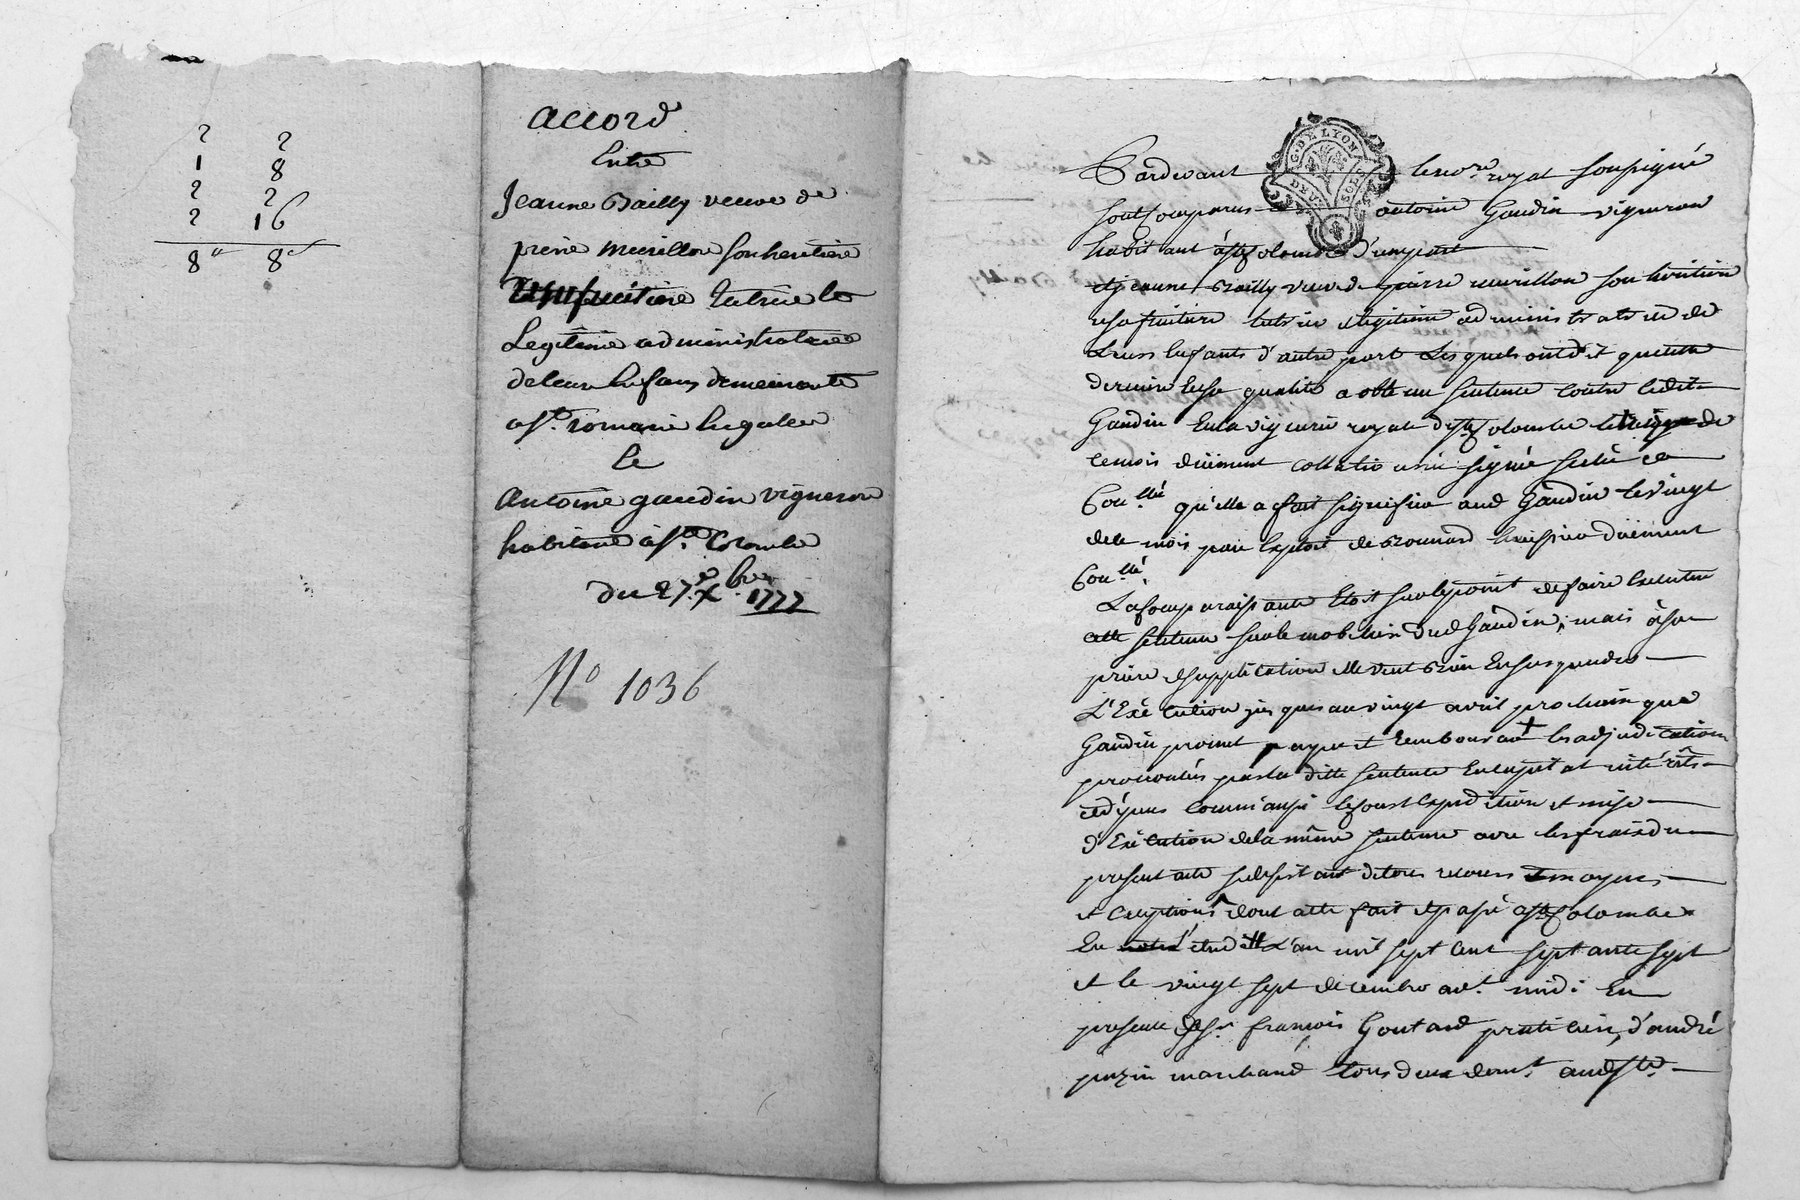 2 2
1 8
2 2
2 16
8 8
accord
Entre
Jeanne Bailly veuve de
pierre murillon son heritiere
usufruitiere tutrice et
Legitime administratrice
de leurs enfans demeurante
a St. romain en galle
Et
Antoine gaudin vigneron
habitant a Ste Colombe
du 27e Xbre 1777
No 1036
G. DE LYON
DEUX SOLS
Pardevant le nore royal soussigné
sont comparus antoine Gaudin vigneron
habitant à Ste Colombe d'une part
et jeanne Bailly veuve de pierre murillon son heritiere
usufruitiere tutrice et legitime administratrice de
Leurs enfants d'autre part Lesquels ont dit que cette
derniere en sa qualité a obtenu sentence contre ledit
Gaudin en la viguerie royale de Ste Colombe le
ce mois düement collationnée signée scellée et
Conllé qu'elle a fait signifier aud Gaudin le vingt
de ce mois par Exploit de Bonnard huissier düement
Conllé.
La Comparaissante Etoit sur le point de faire Executer
cette sentence sur le mobilier dud Gaudin; mais à sa
priere et supplication elle veut bien En suspendre
L'Exécution jusques au vingt avril prochain que
Gaudin promet payer et rembourser + les adjudications
prononcées par la ditte sentence En capital intérêts
et dépens comm'aussi le coust Expedition et mise
d'Exécution de la même sentence avec les frais du
present acte se desistant de tous recours et moyens
et Exceptions dont acte fait et passé a Ste Colombe
En L'etude L'an mil sept cent septante sept
et le vingt sept decembre avt. midi En
presence de Sr. françois Goutard praticien, d'andré
pozin marchand tous deux demt. aud Ste.